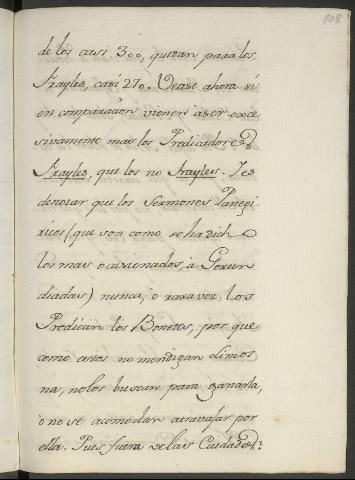 108
de los casi 300, quedan para los
Frayles, casi 270. Vease ahora si
en comparacion vienen a ser exce
sivamente mas los Predicadores
Frayles, que los no frayles. Ies
denotar que los Sermones Panegi
ricos (que son como se ha dicho
los mas ocasionados, à Gerun
diadas) nunca, ò rara vez los
Predican los Bonetes, por que
como estos no mendigan Limos
na, no los buscan para ganarla,
o no se acomodan atravajar por
ella. Pues fuera de las Ciudades